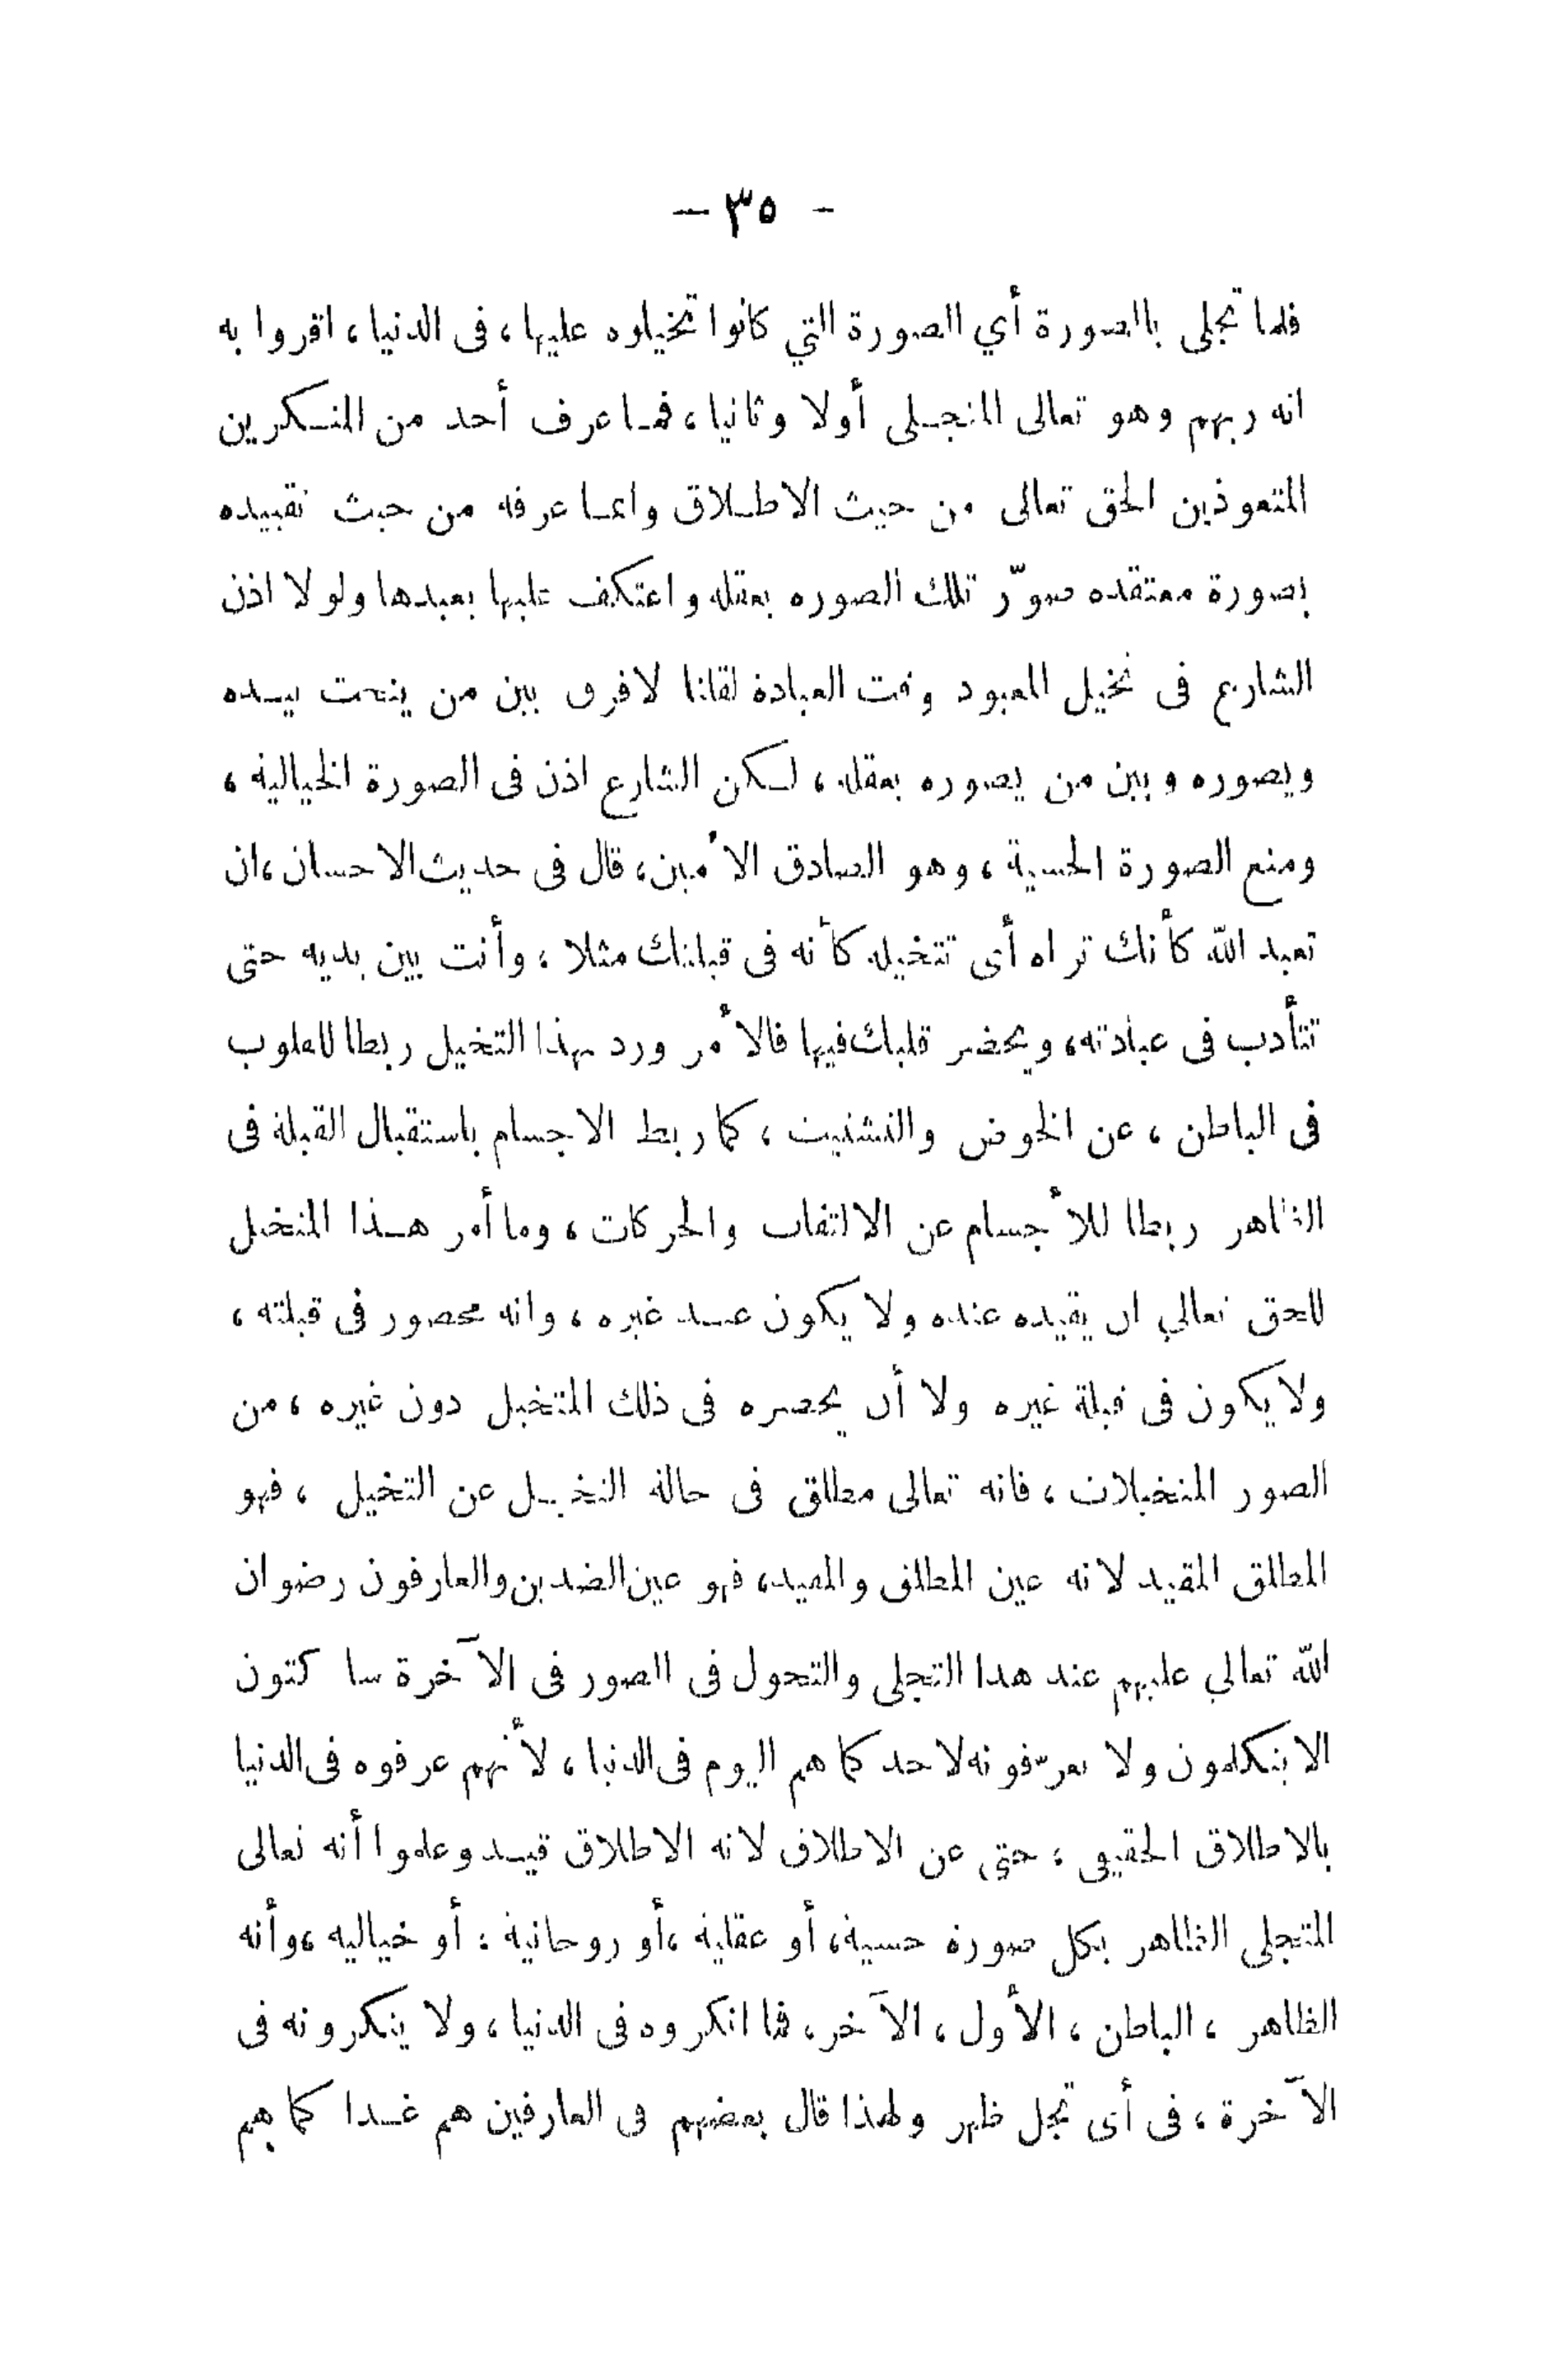 - ٣٥ -
فلما تجلى بالصورة أي الصورة التي كانوا تخيلوه عليها، فى الدنيا، اقروا به
انه ربهم وهو تعالى المتجلى أولا وثانيا، فما عرف أحد من المنكرين
المتعوذين الحق تعالى من حيث الاطلاق وانما عرفه من حيث تقييده
بصورة معتقده صوّر تلك الصوره بعقله واعتكف عليها يعبدها ولولا اذن
الشارع فى تخيل المعبود وقت العبادة لقلنا لافرق بين من ينحت بيده
ويصوره وبين من يصوره بعقله، لكن الشارع اذن فى الصورة الخيالية،
ومنع الصورة الحسية، وهو الصادق الأمين، قال فى حديث الاحسان، ان
تعبد الله كأنك تراه أى تتخيله كأنه فى قبلتك مثلا، وأنت بين يديه حتى
تتأدب فى عبادته، ويحضر قلبك فيها فالأمر ورد بهذا التخيل ربطا للقلوب
فى الباطن، عن الخوض والتشتيت، كما ربط الاجسام باستقبال القبلة فى
الظاهر ربطا للأجسام عن الالتفات والحركات، وما أمر هذا المتخيل
للحق تعالي ان يقيده عنده ولا يكون عند غيره، وانه محصور فى قبلته،
ولا يكون فى قبلة غيره ولا أن يحصره فى ذلك المتخيل دون غيره، من
الصور المتخيلات، فانه تعالى مطلق فى حالة التخيل عن التخيل، فهو
المطلق المقيد لانه عين المطلق والمقيد، فهو عين الضدين والعارفون رضوان
الله تعالي عليهم عند هذا التجلى والتحول فى الصور فى الآخرة سا كتون
لا يتكلمون ولا يعرّفونه لاحد كما هم اليوم فى الدنيا، لأنهم عرفوه فى الدنيا
بالاطلاق الحقيقى، حتى عن الاطلاق لانه الاطلاق قيد وعلموا أنه تعالى
المتجلى الظاهر بكل صورة حسية، أو عقلية، أو روحانية، أو خياليه، وأنه
الظاهر، الباطن، الأول، الآخر، فما انكروه فى الدنيا، ولا ينكرونه فى
الآخرة، فى أى تجل ظهر ولهذا قال بعضهم فى العارفين هم غدا كما هم